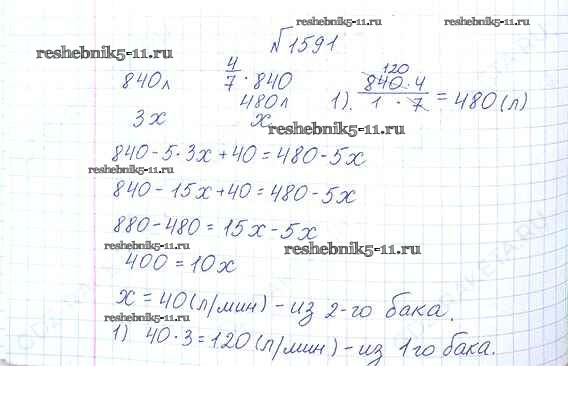 reshebnik5-11.ru
reshebnik5-11.ru
№1591
reshebnik5-11.ru
840л 4/7 · 840
480л
3x x
1). 840 · 4 / 1 · 7 = 480 (л)
120
reshebnik5-11.ru
840 - 5 · 3x + 40 = 480 - 5x
reshebnik5-11.ru
840 - 15x + 40 = 480 - 5x
880 - 480 = 15x - 5x
reshebnik5-11.ru
reshebnik5-11.ru
400 = 10x
x = 40 (л/мин) - из 2-го бака.
reshebnik5-11.ru
1) 40 · 3 = 120 (л/мин) - из 1го бака.